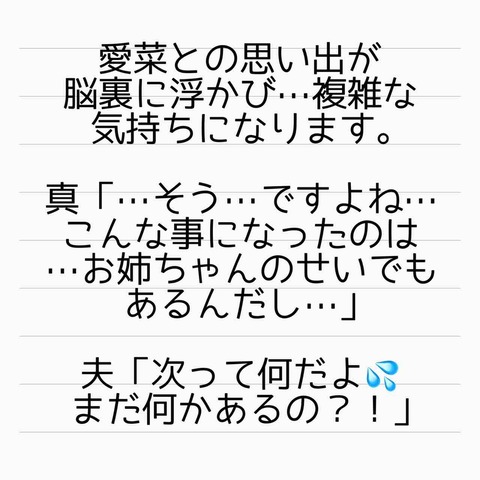 愛菜との思い出が
脳裏に浮かび…複雑な
気持ちになります。
真「…そう…ですよね…
こんな事になったのは
…お姉ちゃんのせいでも
あるんだし…」
夫「次って何だよ💦
まだ何かあるの？！」